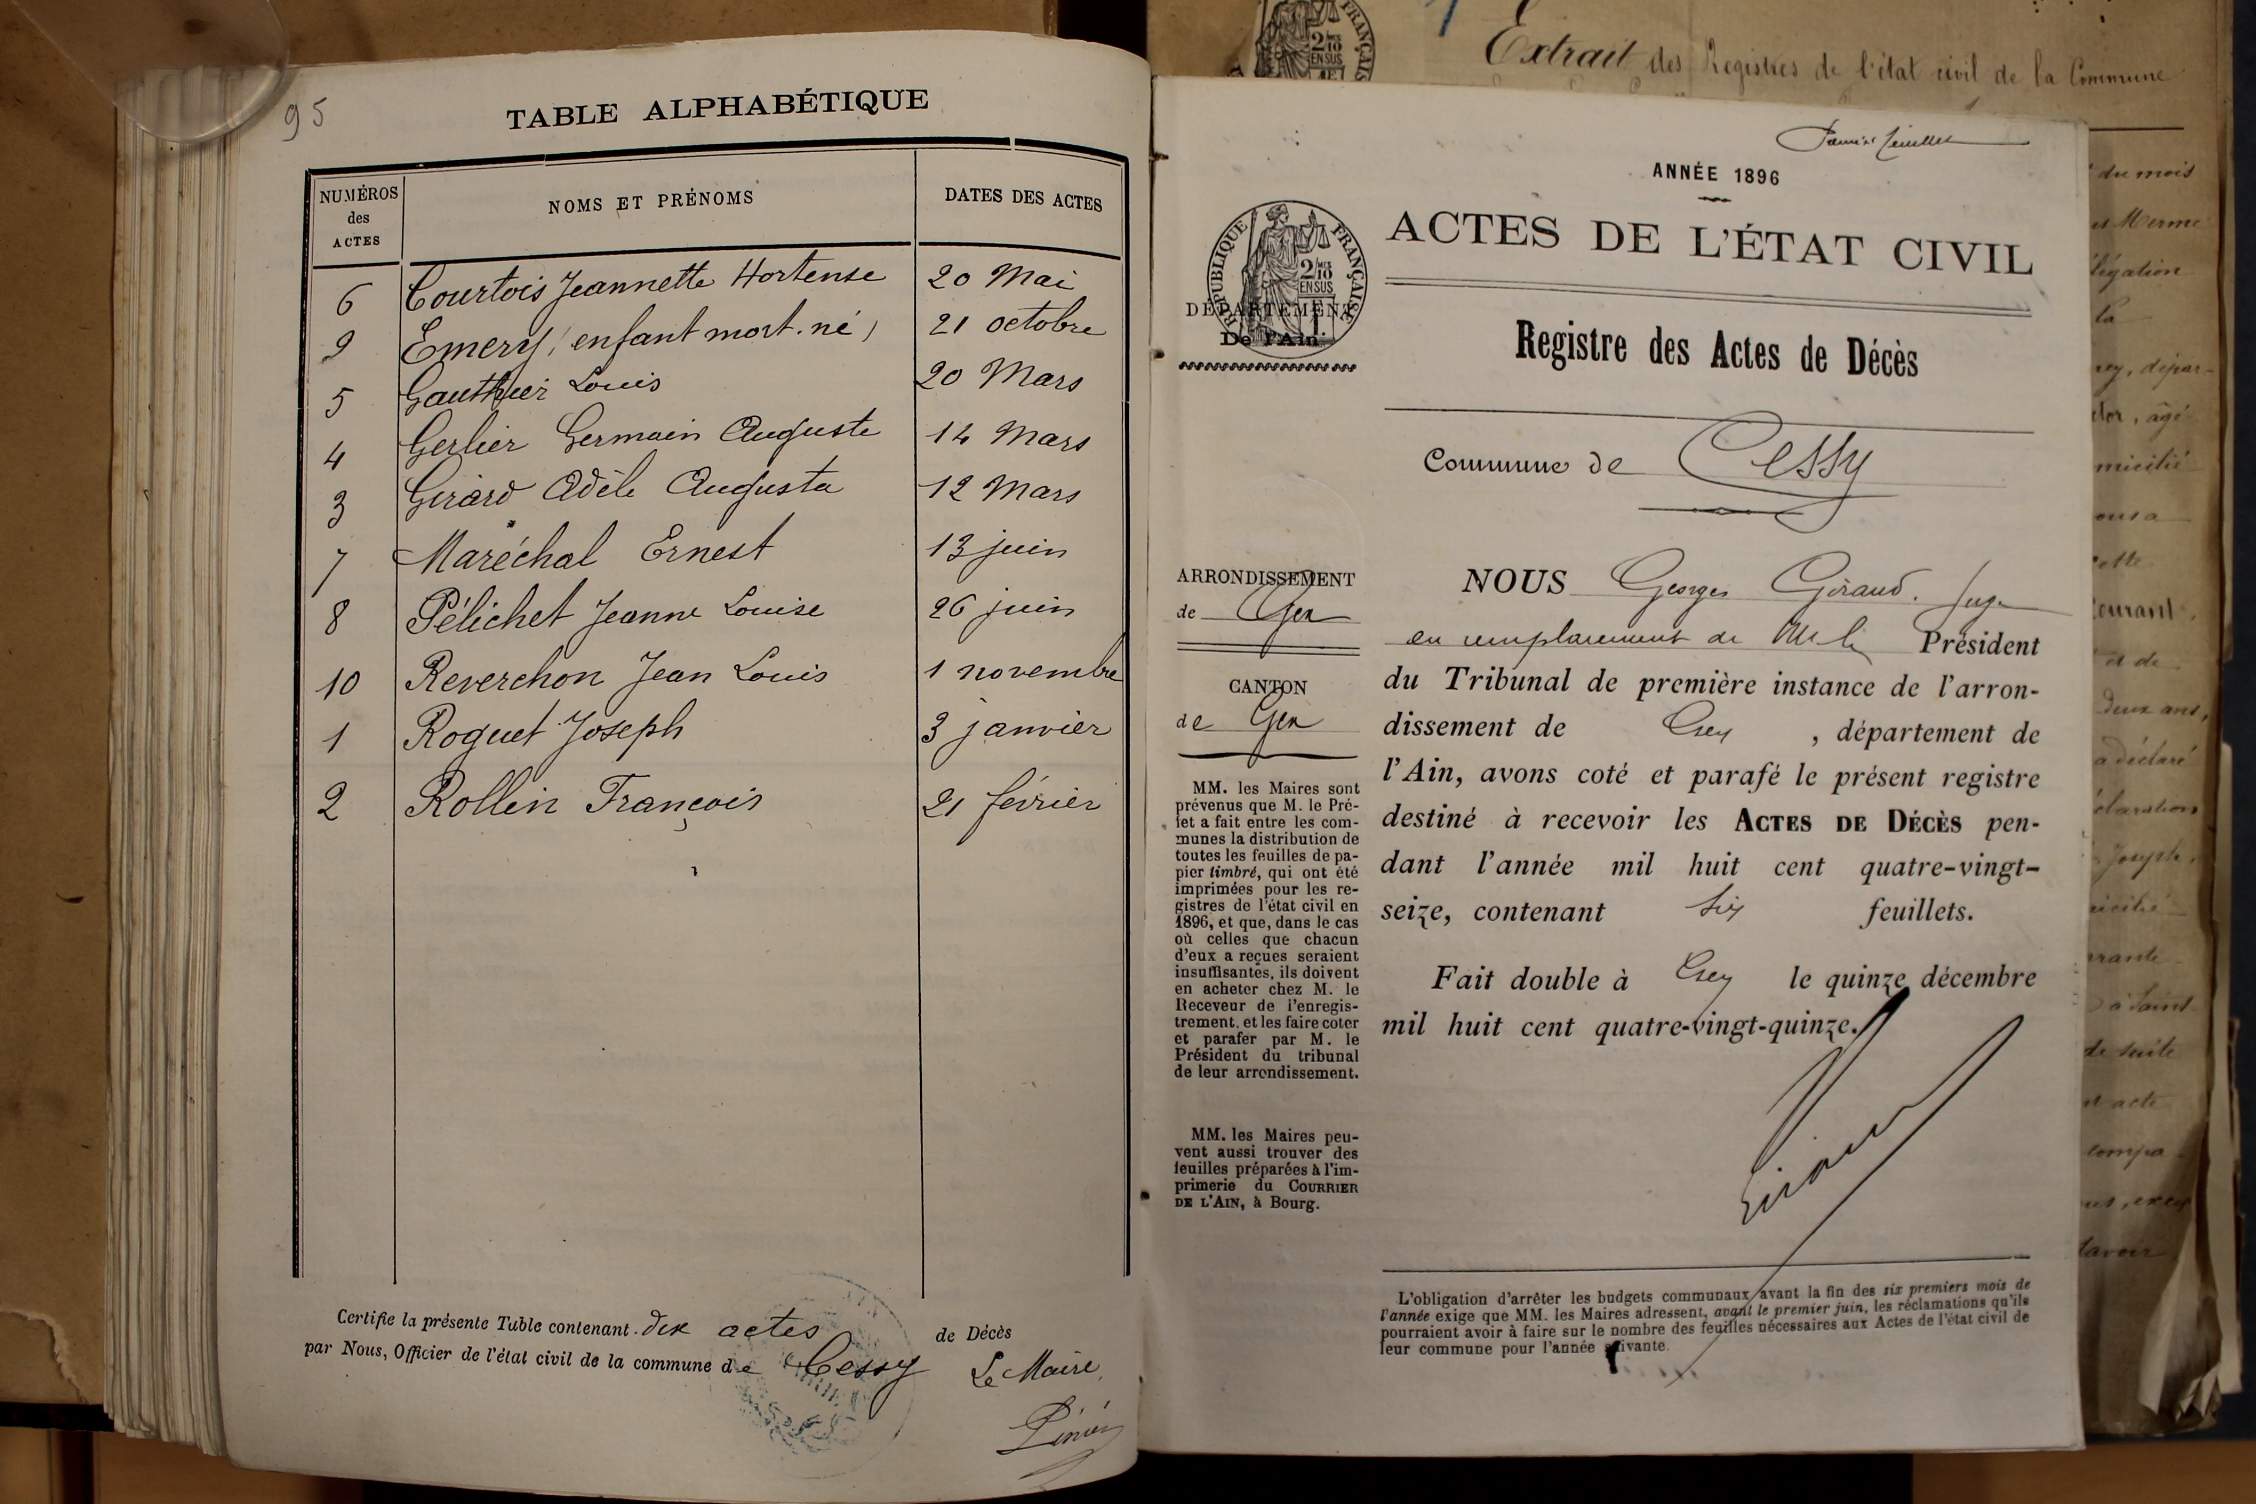 95
TABLE ALPHABÉTIQUE
NUMÉROS des ACTES
NOMS ET PRÉNOMS
DATES DES ACTES
6 Courtois Jeannette Hortense 20 Mai
9 Emery (enfant mort-né) 21 octobre
5 Gauthier Louis 20 Mars
4 Gerlier Germain Auguste 14 Mars
3 Girard Adèle Augusta 12 Mars
7 Maréchal Ernest 13 juin
8 Pélichet Jeanne Louise 26 juin
10 Reverchon Jean Louis 1 novembre
1 Roguet Joseph 3 janvier
2 Rollin François 21 février
Certifie la présente Table contenant dix actes de Décès
par Nous, Officier de l'état civil de la commune de Cessy Le Maire,
Extrait des Registres de l'état civil de la Commune
ANNÉE 1896
ACTES DE L'ÉTAT CIVIL
RÉPUBLIQUE FRANÇAISE
2/10 MES
EN SUS
DÉPARTEMENT
De l'Ain
Registre des Actes de Décès
Commune de Cessy
ARRONDISSEMENT
de Gex
CANTON
de Gex
MM. les Maires sont
prévenus que M. le Pré-
fet a fait entre les com-
munes la distribution de
toutes les feuilles de pa-
pier timbré, qui ont été
imprimées pour les re-
gistres de l'état civil en
1896, et que, dans le cas
où celles que chacun
d'eux a reçues seraient
insuffisantes, ils doivent
en acheter chez M. le
Receveur de l'enregis-
trement, et les faire coter
et parafer par M. le
Président du tribunal
de leur arrondissement.
MM. les Maires peu-
vent aussi trouver des
feuilles préparées à l'im-
primerie du COURRIER
DE L'AIN, à Bourg.
NOUS Georges Giraud, Juge
en remplacement de M. le Président
du Tribunal de première instance de l'arron-
dissement de Gex, département de
l'Ain, avons coté et parafé le présent registre
destiné à recevoir les ACTES DE DÉCÈS pen-
dant l'année mil huit cent quatre-vingt-
seize, contenant six feuillets.
Fait double à Gex le quinze décembre
mil huit cent quatre-vingt-quinze.
Giraud
L'obligation d'arrêter les budgets communaux avant la fin des six premiers mois de
l'année exige que MM. les Maires adressent, avant le premier juin, les réclamations qu'ils
pourraient avoir à faire sur le nombre des feuilles nécessaires aux Actes de l'état civil de
leur commune pour l'année suivante.
du mois
la
âgé
courant,
et de
deux ans,
a déclaré
Joseph,
de suite
acte